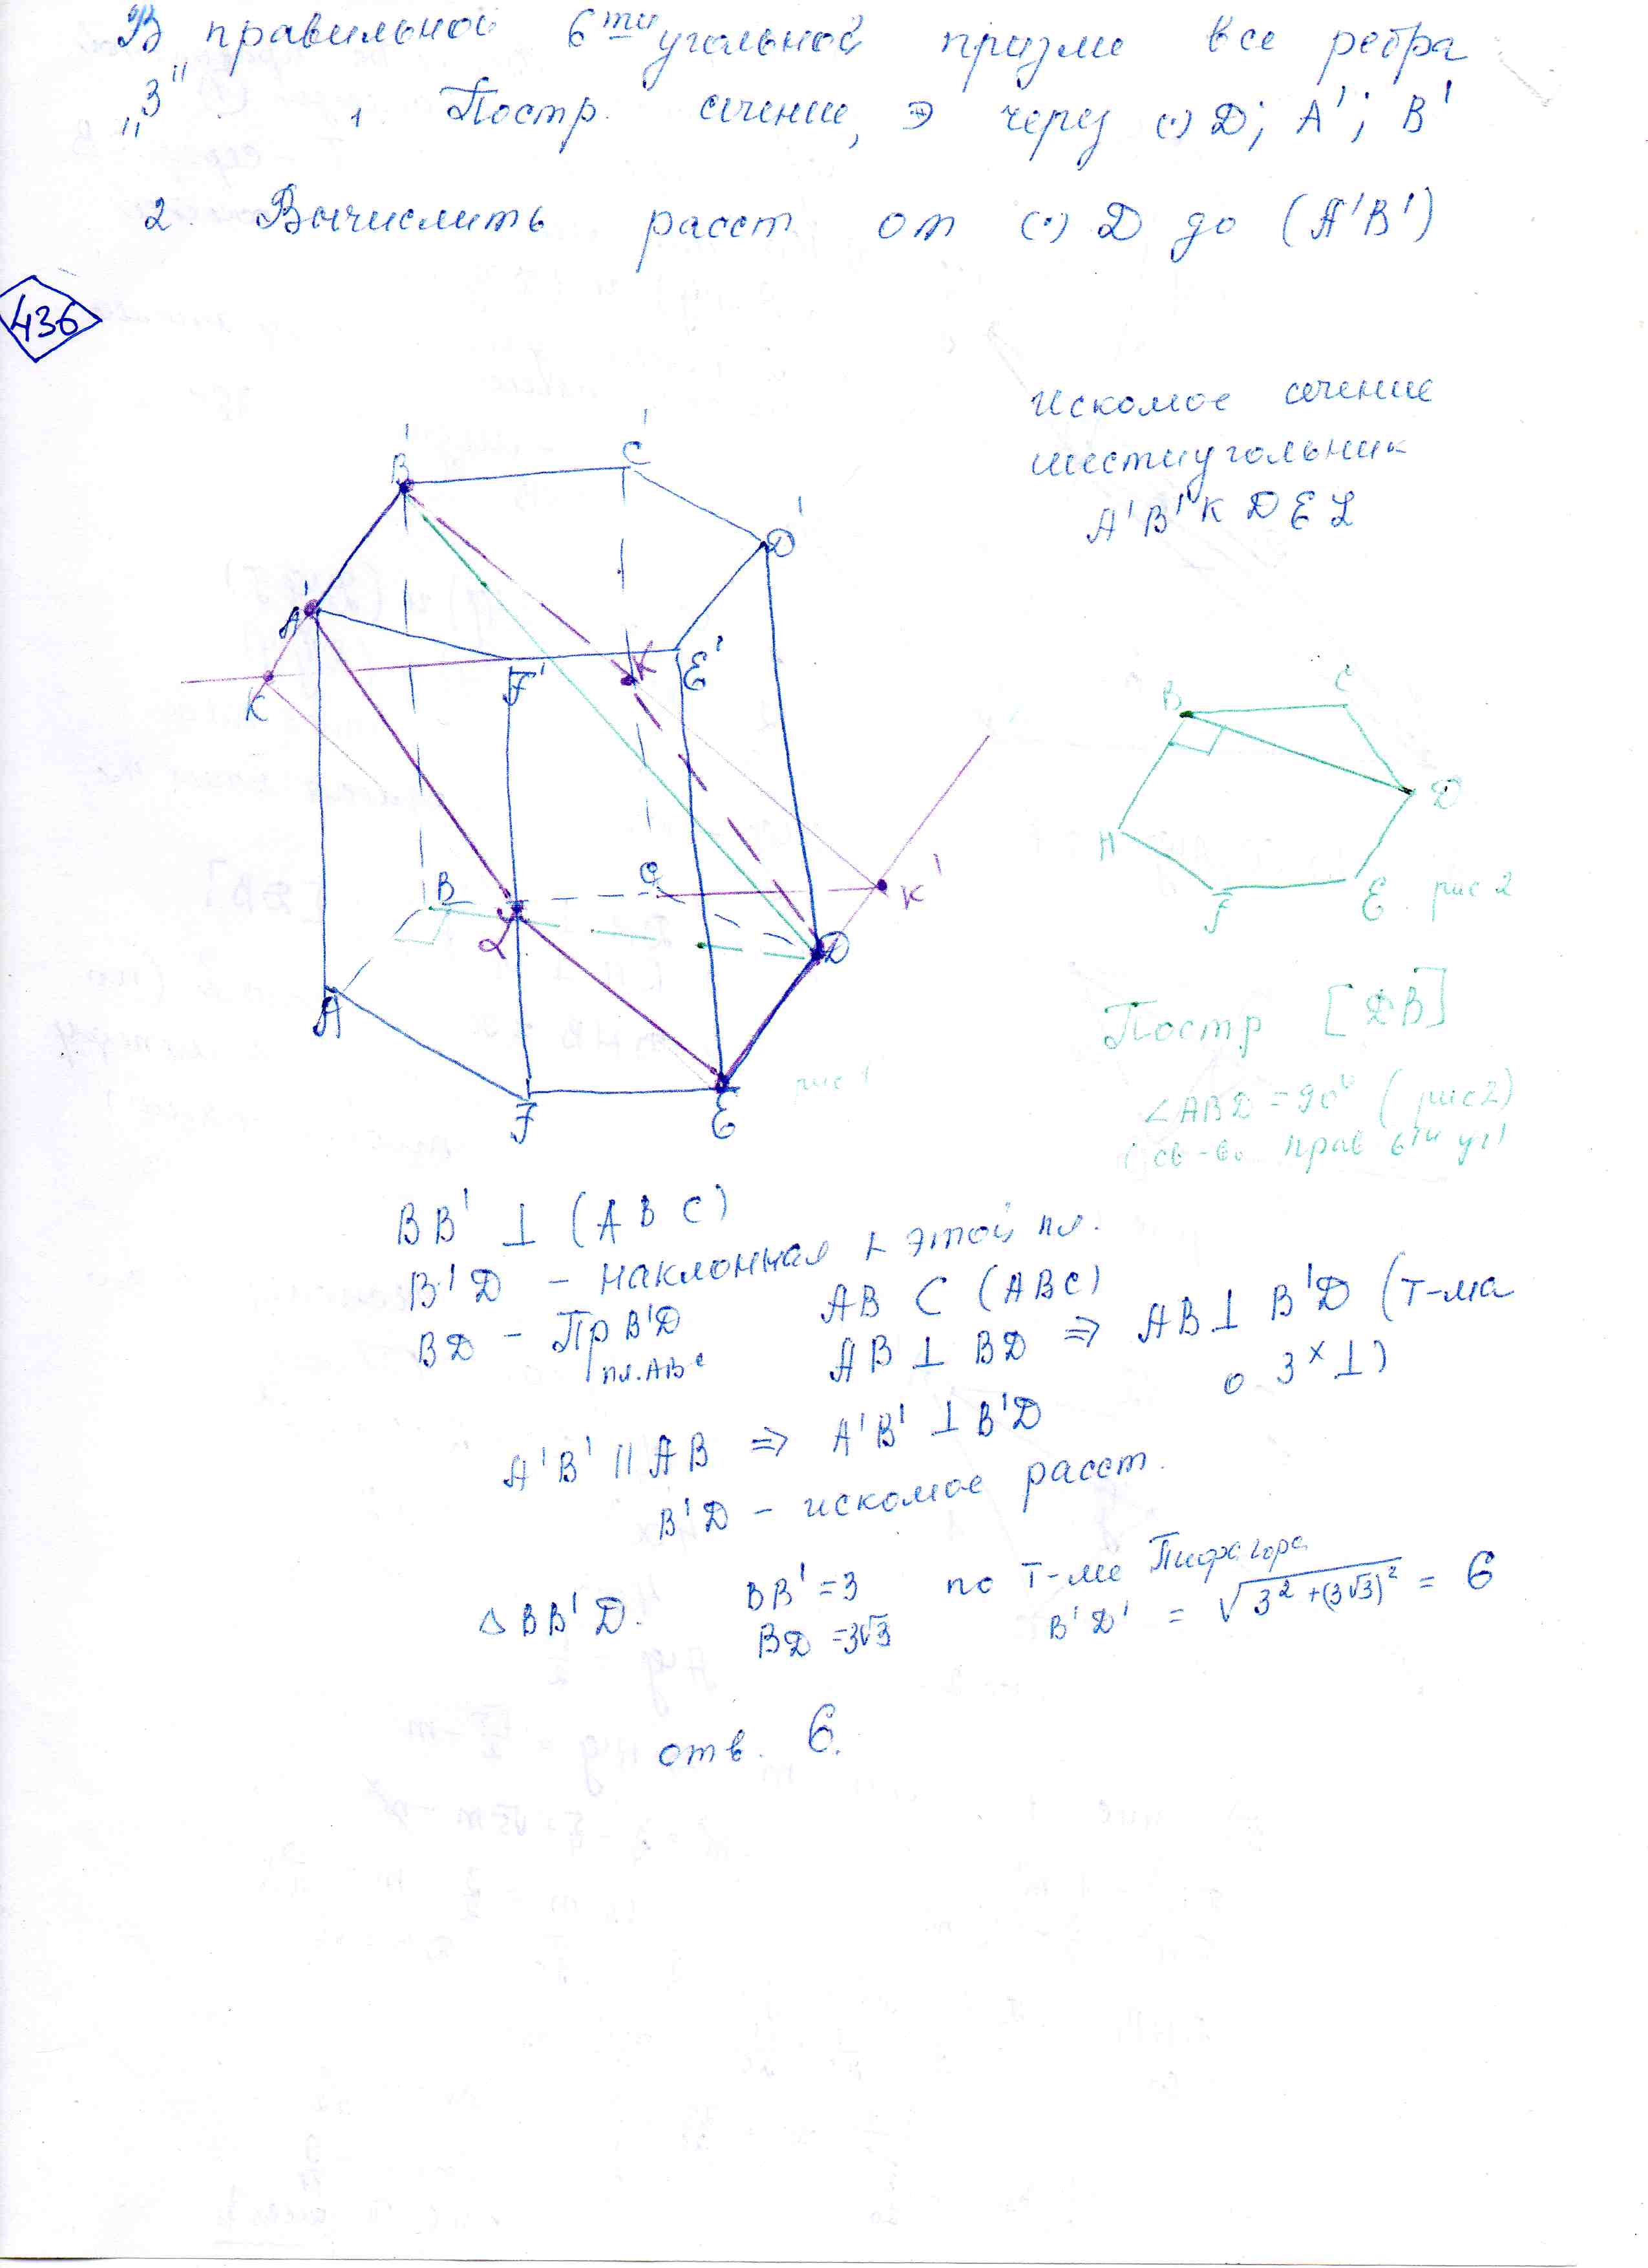 В правильной 6ти угольной призме все ребра
"3" 1. Постр. сечение, Э через (·) D; A'; B'
2. Вычислить расст от (·) D до (A'B')
436
Искомое сечение
шестиугольник
A'B'K D E L
B' C' D' A' K F' E' K
B C K' L D A F E рис 1
B C D H F E рис 2
Постр [DB]
∠ABD = 90° (рис 2)
(св-во прав 6ти уг)
BB' ⊥ (ABC)
B'D - наклонная к этой пл.
BD - Пр B'D пл. ABC
AB ⊂ (ABC)
AB ⊥ BD ⇒ AB ⊥ B'D (т-ма
о 3х ⊥)
A'B' || AB ⇒ A'B' ⊥ B'D
B'D - искомое расст.
△BB'D. BB' = 3 по т-ме Пифагора
BD = 3√3 B'D' = √(3² + (3√3)²) = 6
отв. 6.